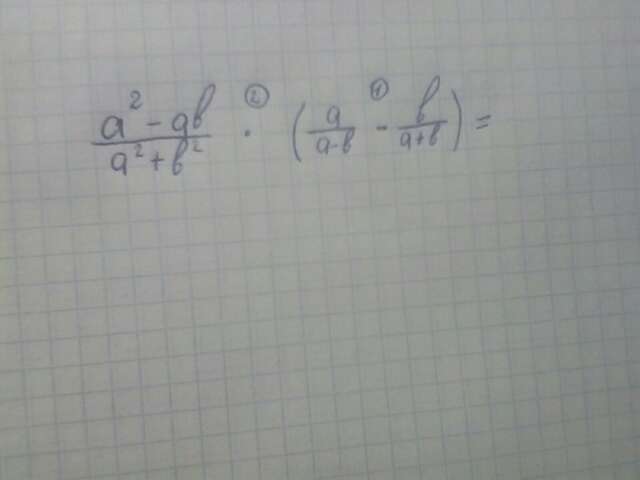 (a² - ab)/(a² + b²) ·② (a/(a-b) -① b/(a+b)) =